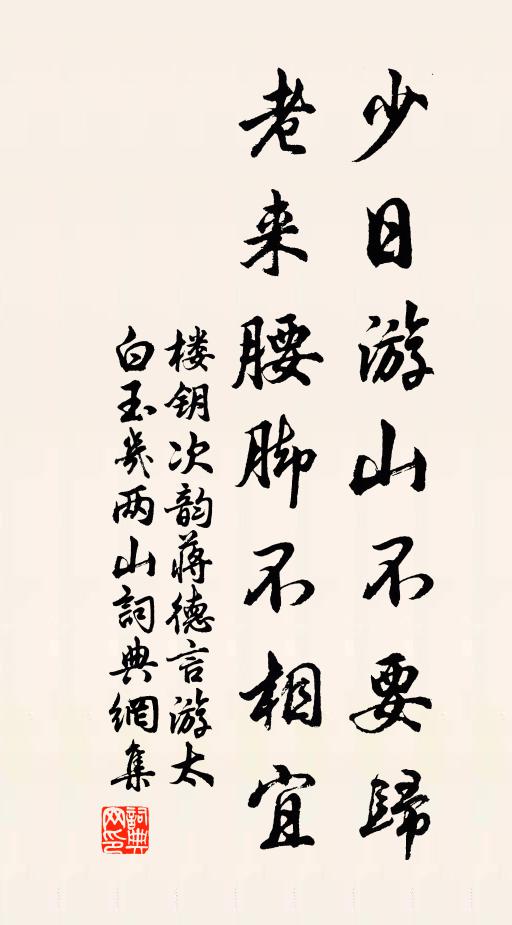 少日游山不要歸
老来腰脚不相宜
楼钥次韵蒋德言游太
白玉几两山詞典網集
詞典
网印